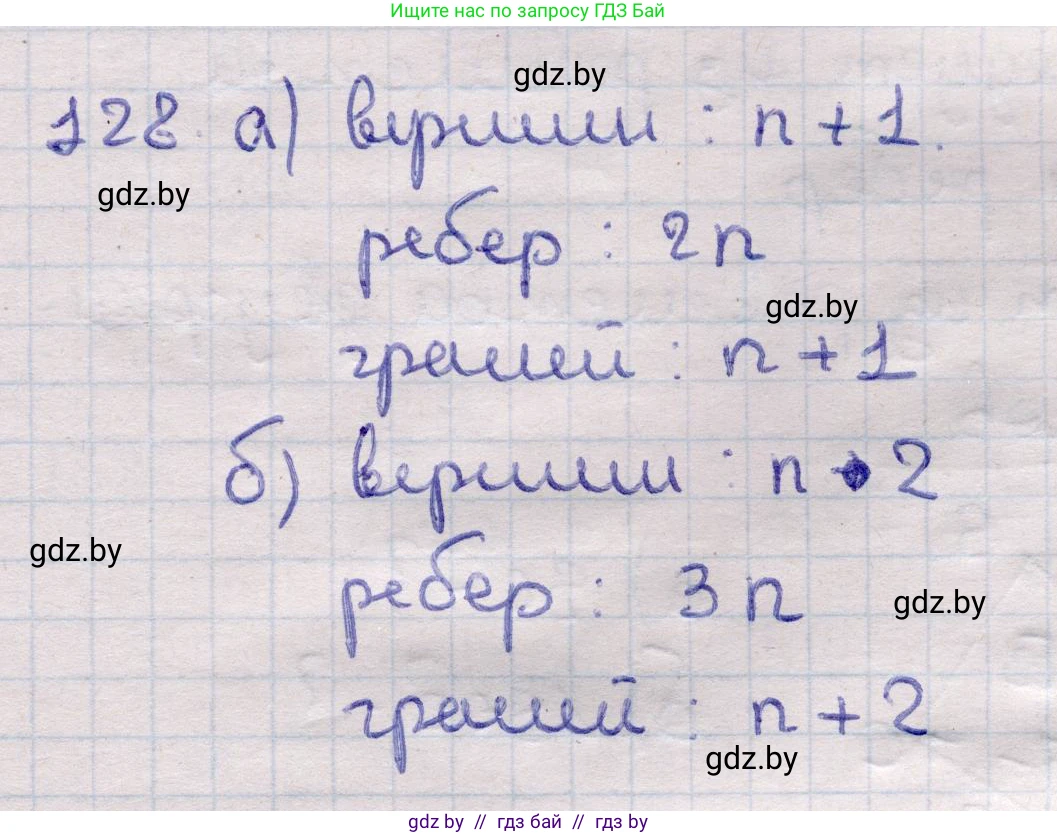 Ищите нас по запросу ГДЗ Бай
gdz.by
128. а) вершин : n + 1.
gdz.by
ребер : 2n
gdz.by
граней : n + 1
б) вершин : n • 2
gdz.by
ребер : 3n
gdz.by
граней : n + 2
gdz.by
gdz by // гдз бай // гдз by